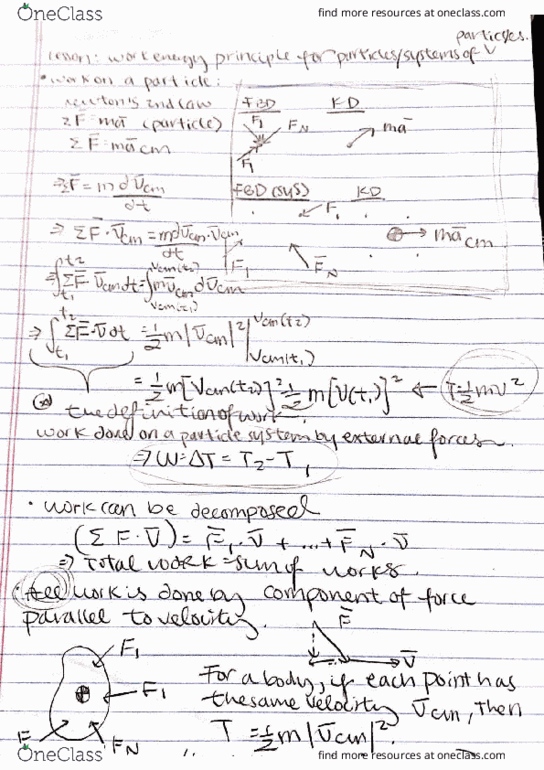 OneClass
find more resources at oneclass.com
particles.
Lesson: work energy principle for particles/systems of
• work on a particle:
Newton's 2nd Law
FBD KD
ΣF̄ = mā (particle)
F₁ F_N mā
ΣF̄ = mā cm
F₁
⇒ ΣF̄ = m dv̄cm/dt
FBD (sys) KD
F₁
⇒ ΣF̄ · v̄cm = m dv̄cm/dt · v̄cm
mā cm
F₁ F̄_N
⇒ ∫t₁ t₂ ΣF̄ · v̄cm dt = ∫vcm(t₁) vcm(t₂) m v̄cm dv̄cm
⇒ ∫t₁ t₂ ΣF̄ · v̄ dt = ½ m |v̄cm|² | vcm(t₂) vcm(t₁)
= ½ m[vcm(t₂)]² - ½ m[v(t₁)]² ← T = ½mv²
the definition of work.
work done on a particle system by external forces.
⇒ W = ΔT = T₂ - T₁
• work can be decomposed
(ΣF · v̄) = F̄₁ · v̄ + ... + F̄_N · v̄
⇒ Total work = sum of works.
• All work is done by component of force
parallel to velocity.
F̄
v̄
F₁
For a body, if each point has
F₁
the same velocity v̄cm, then
T = ½ m |v̄cm|².
F F_N
OneClass
find more resources at oneclass.com